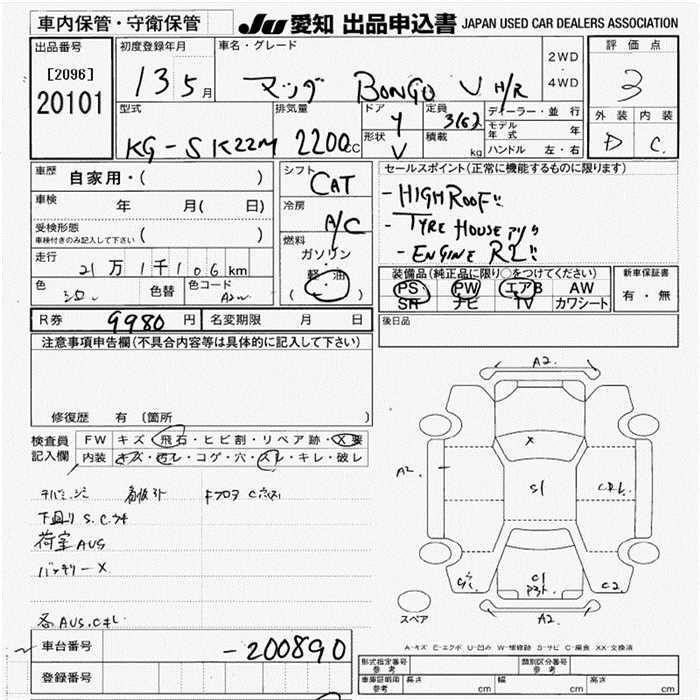 車内保管・守衛保管
JU 愛知 出品申込書 JAPAN USED CAR DEALERS ASSOCIATION
出品番号
[2096]
20101
初度登録年月
13 5月
車名・グレード
マツダ BONGO V H/R
2WD
・
4WD
評価点
3
外装 内装
D C
型式
KG-SK22M
排気量
2200cc
ドア
4
形状
V
定員
3(6)
積載
kg
ディーラー・並行
モデル年式 年
ハンドル 左・右
車歴
自家用・( )
車検 年 月( 日)
受検形態
車検付きのみ記入して下さい ( )
走行 21万1千106km
色 シロ 色替 色コード A2W
シフト
CAT
冷房
A/C
燃料
ガソリン
軽油
( )
セールスポイント(正常に機能するものに限ります)
- HIGH ROOF
- TYRE HOUSE アリ
- ENGINE R2
装備品(純正品に限り○をつけてください)
PS PW エアB AW
SR ナビ TV カワシート
新車保証書
有・無
R券 9980円 名変期限 月 日
後日品
注意事項申告欄(不具合内容等は具体的に記入して下さい)
修復歴 有 〔箇所
検査員記入欄
FW キズ・飛石・ヒビ割・リペア跡・X要
内装 キズ・汚レ・コゲ・穴・スレ・キレ・破レ
下回り S.C.
荷室 AUS
バッテリーX
各AUS.Cキレ
A2.
X
A2.
S1
C1
C2.
A2.
スペア
A-キズ E-エクボ U-凹み W-補修跡 S-サビ C-腐食 XX-交換済
車台番号 -200890
登録番号
形式指定番号
参考
類別区分番号
参考
車庫証明用
参考
長さ cm 幅 cm 高さ cm